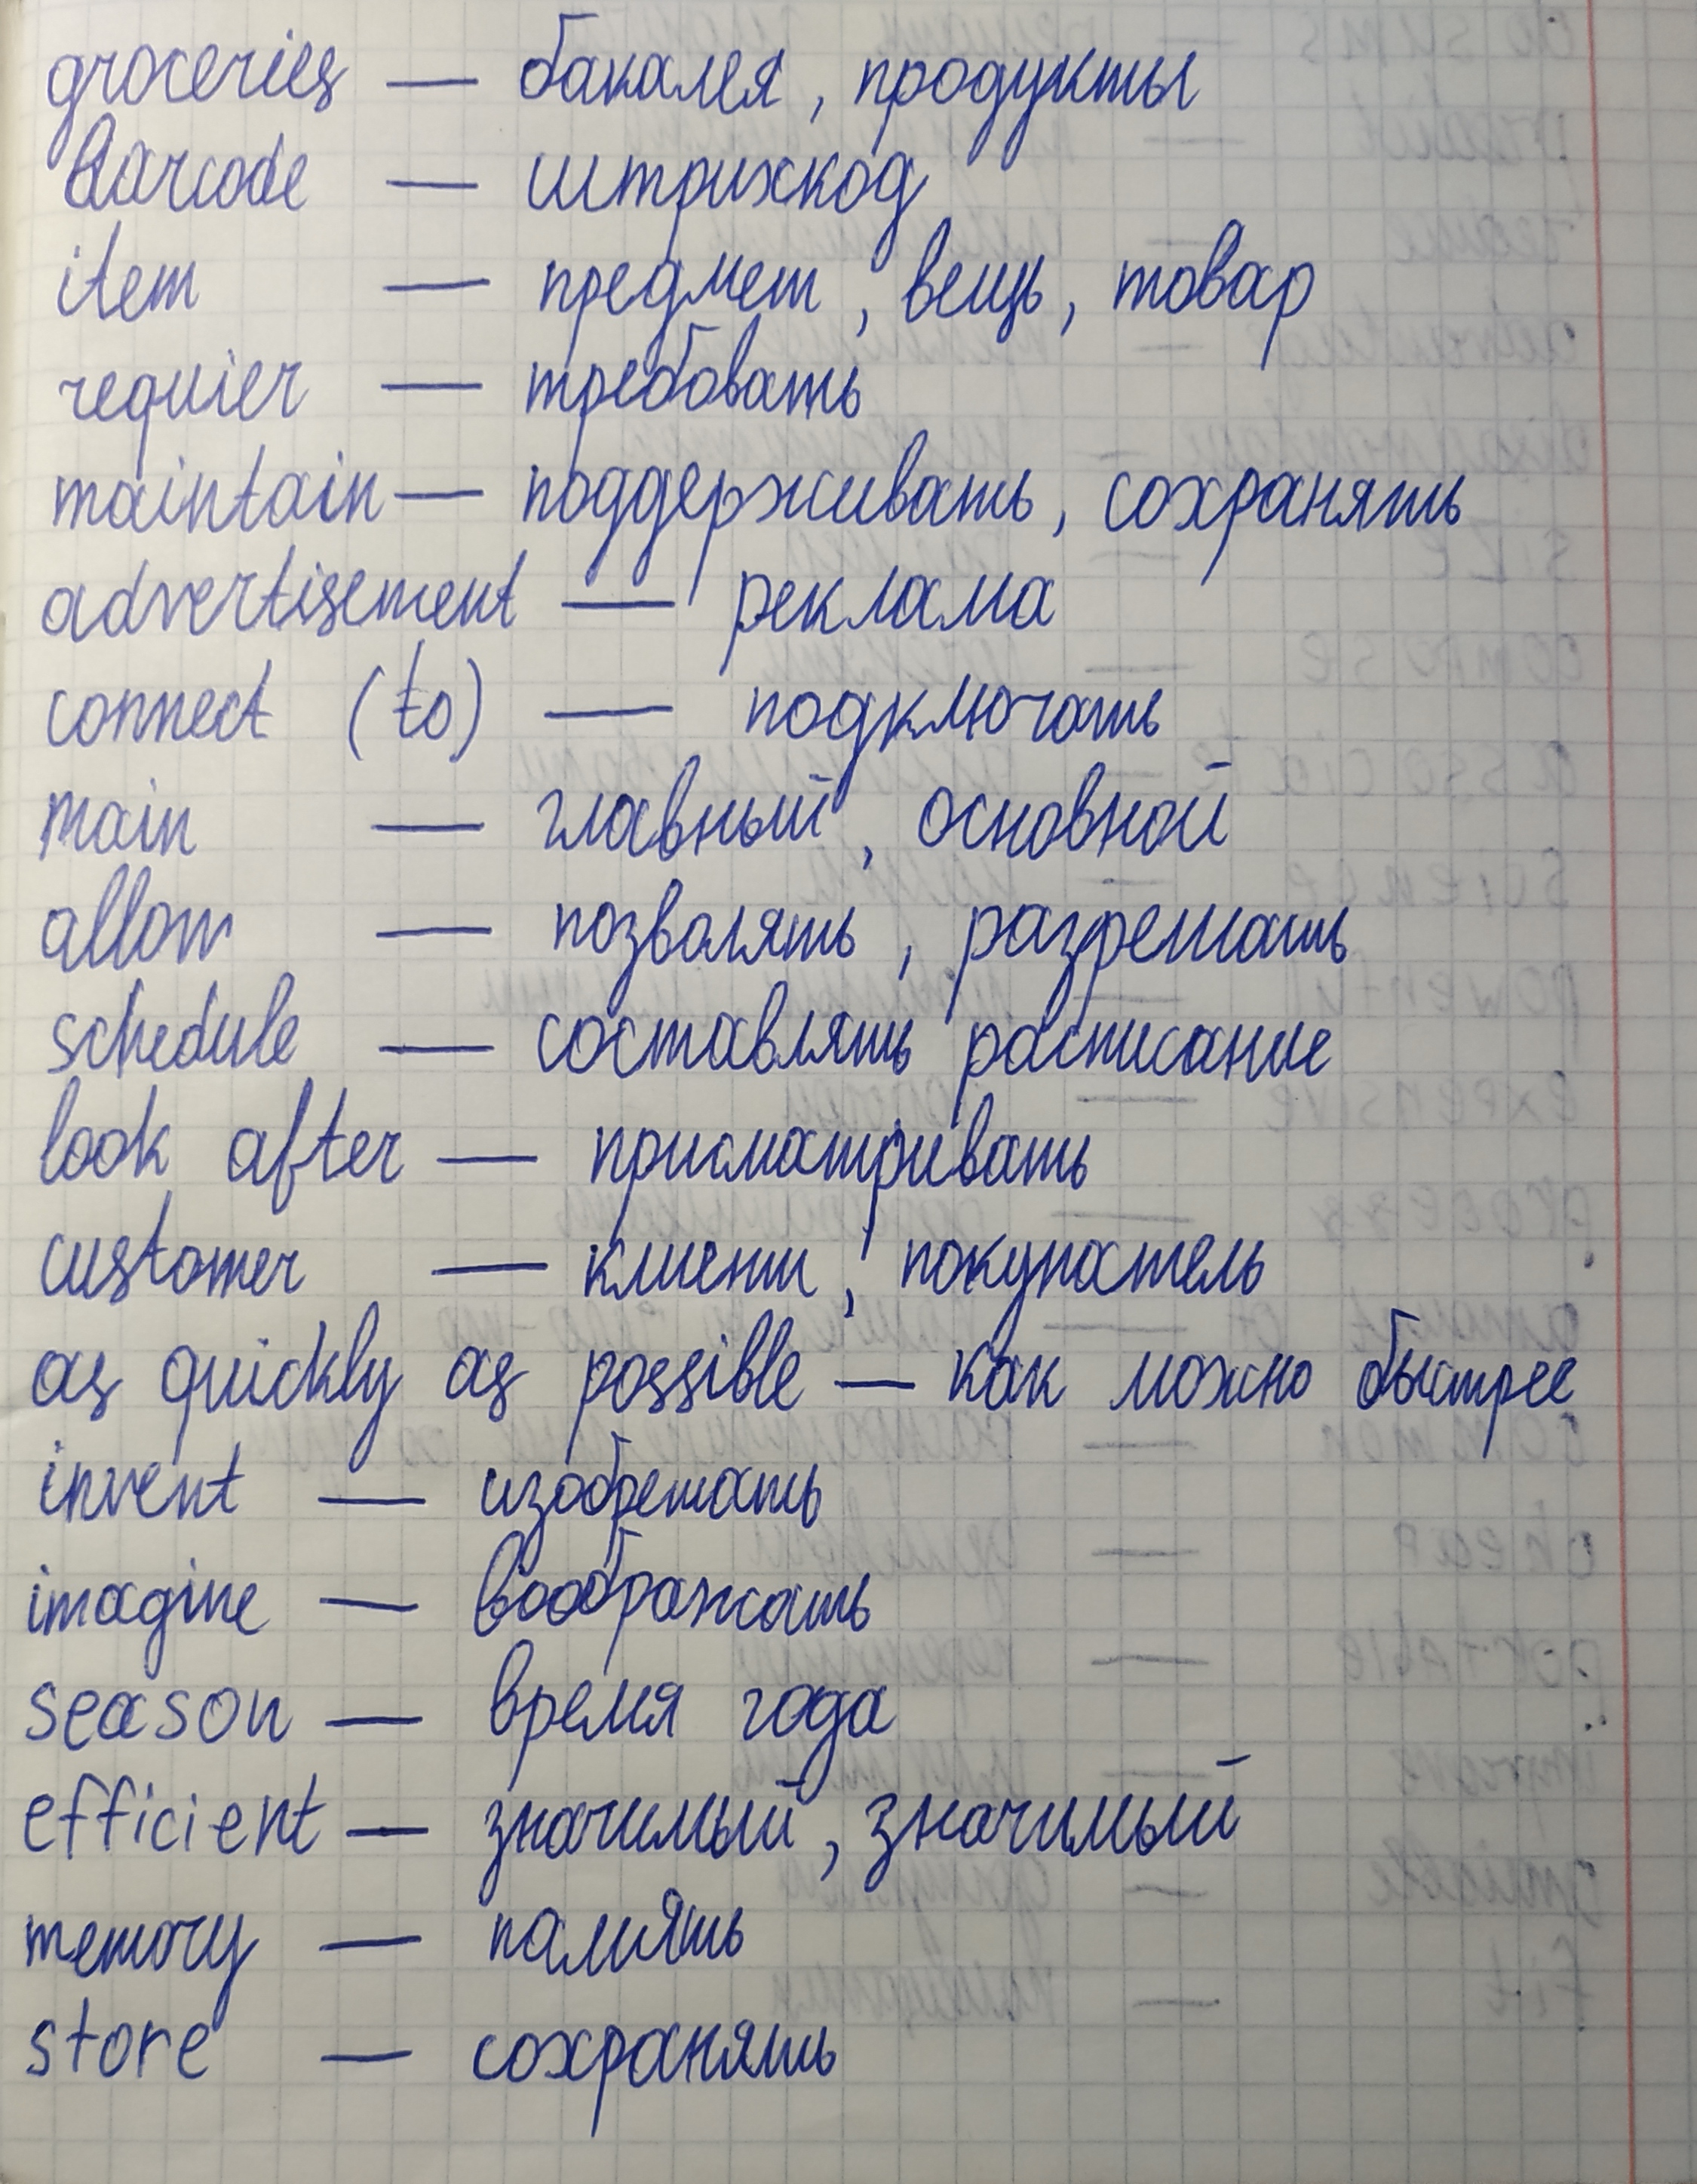 groceries — бакалея, продукты
Barcode — штрихкод
item — предмет, вещь, товар
requier — требовать
maintain — поддерживать, сохранять
advertisement — реклама
connect (to) — подключать
main — главный, основной
allow — позволять, разрешать
schedule — составлять расписание
look after — присматривать
customer — клиент, покупатель
as quickly as possible — как можно быстрее
invent — изобретать
imagine — воображать
season — время года
efficient — значимый, значимый
memory — память
store — сохранять